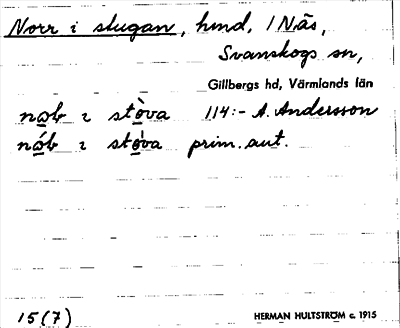 Norr i stugan, hmd, 1 Näs,
Svanskogs sn,
Gillbergs hd, Värmlands län
no̲b ɩ stò̲va 114:- A. Andersson
nó̲b ɩ stò̲va prim. aut.
15(7)
HERMAN HULTSTRÖM c. 1915